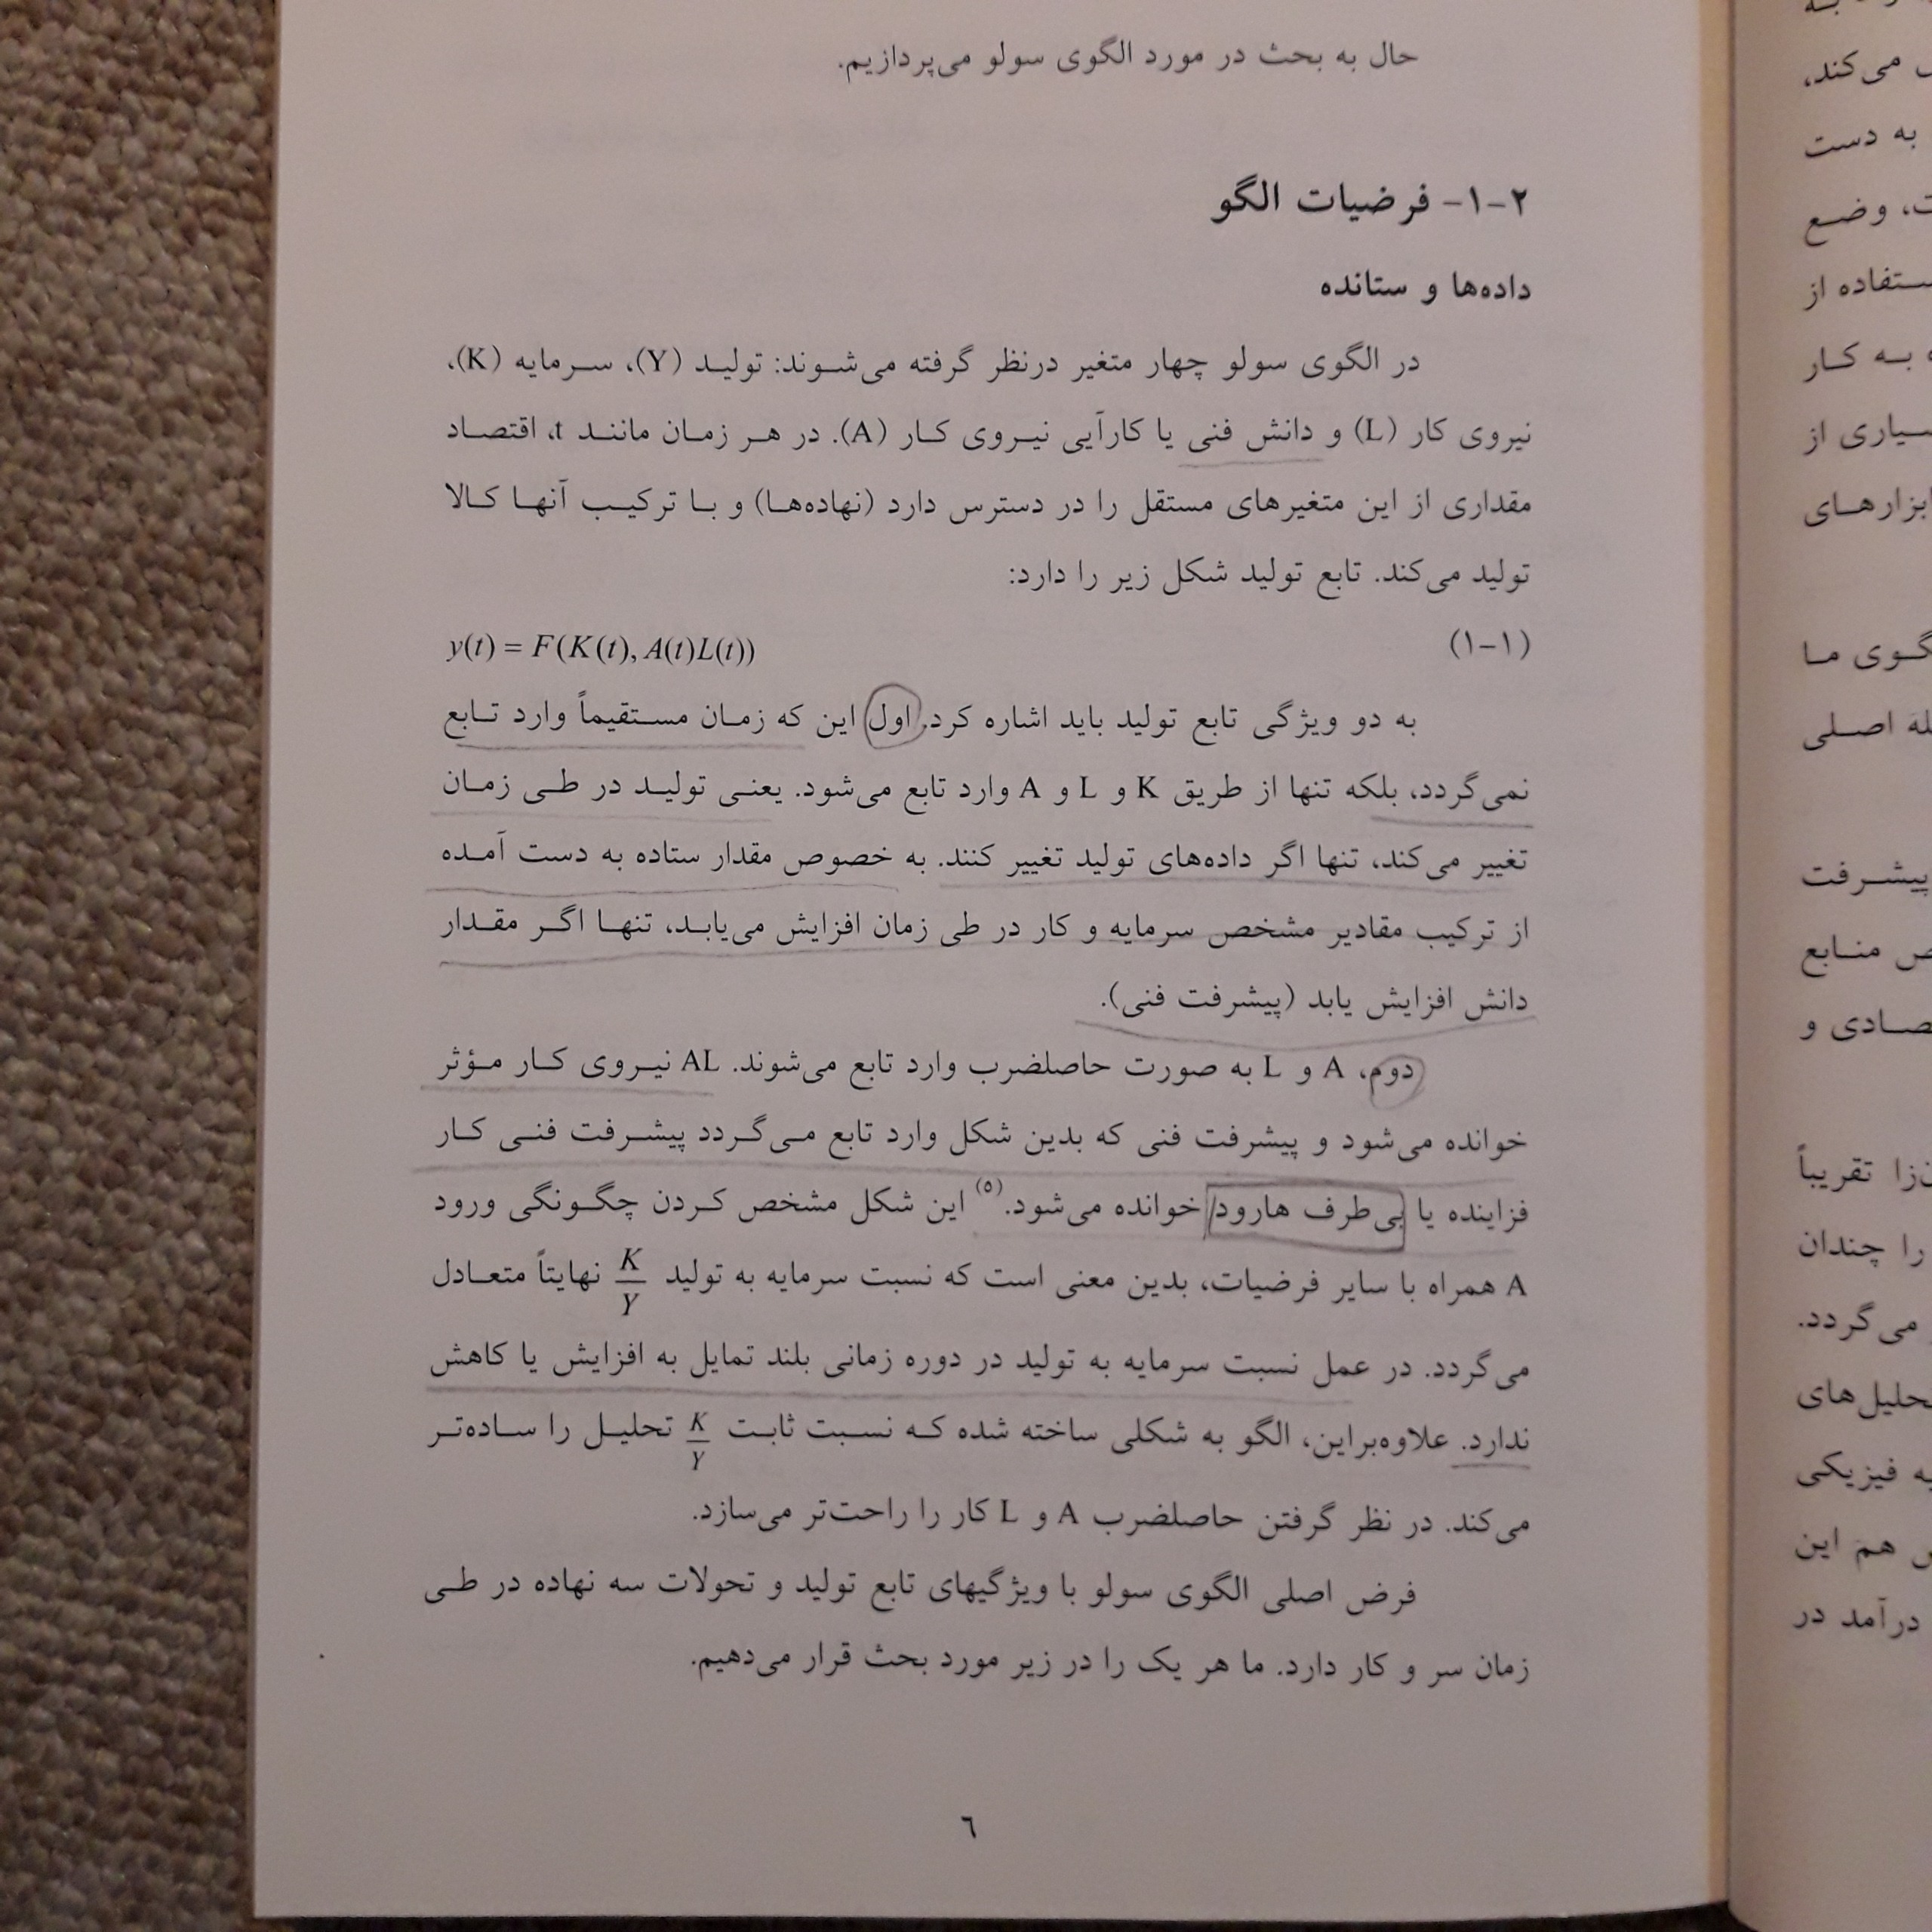 حال به بحث در مورد الگوی سولو می‌پردازیم.
۱-۲- فرضیات الگو
داده‌ها و ستانده
در الگوی سولو چهار متغیر درنظر گرفته می‌شوند: تولید (Y)، سرمایه (K)،
نیروی کار (L) و دانش فنی یا کارآیی نیروی کار (A). در هر زمان مانند t، اقتصاد
مقداری از این متغیرهای مستقل را در دسترس دارد (نهاده‌ها) و با ترکیب آنها کالا
تولید می‌کند. تابع تولید شکل زیر را دارد:
(۱-۱) y(t) = F(K(t), A(t)L(t))
به دو ویژگی تابع تولید باید اشاره کرد. اول این که زمان مستقیماً وارد تابع
نمی‌گردد، بلکه تنها از طریق K و L و A وارد تابع می‌شود. یعنی تولید در طی زمان
تغییر می‌کند، تنها اگر داده‌های تولید تغییر کنند. به خصوص مقدار ستاده به دست آمده
از ترکیب مقادیر مشخص سرمایه و کار در طی زمان افزایش می‌یابد، تنها اگر مقدار
دانش افزایش یابد (پیشرفت فنی).
دوم، A و L به صورت حاصلضرب وارد تابع می‌شوند. AL نیروی کار مؤثر
خوانده می‌شود و پیشرفت فنی که بدین شکل وارد تابع می‌گردد پیشرفت فنی کار
فزاینده یا بی‌طرف هارود خوانده می‌شود.(۵) این شکل مشخص کردن چگونگی ورود
A همراه با سایر فرضیات، بدین معنی است که نسبت سرمایه به تولید K/Y نهایتاً متعادل
می‌گردد. در عمل نسبت سرمایه به تولید در دوره زمانی بلند تمایل به افزایش یا کاهش
ندارد. علاوه‌براین، الگو به شکلی ساخته شده که نسبت ثابت K/Y تحلیل را ساده‌تر
می‌کند. در نظر گرفتن حاصلضرب A و L کار را راحت‌تر می‌سازد.
فرض اصلی الگوی سولو با ویژگیهای تابع تولید و تحولات سه نهاده در طی
زمان سر و کار دارد. ما هر یک را در زیر مورد بحث قرار می‌دهیم.
٦
به
می‌کند،
به دست
وضع
از
به کار
از
ابزارهای
ما
اصلی
پیشرفت
منابع
و
تقریباً
را چندان
می‌گردد.
تحلیل‌های
فیزیکی
هم این
درآمد در